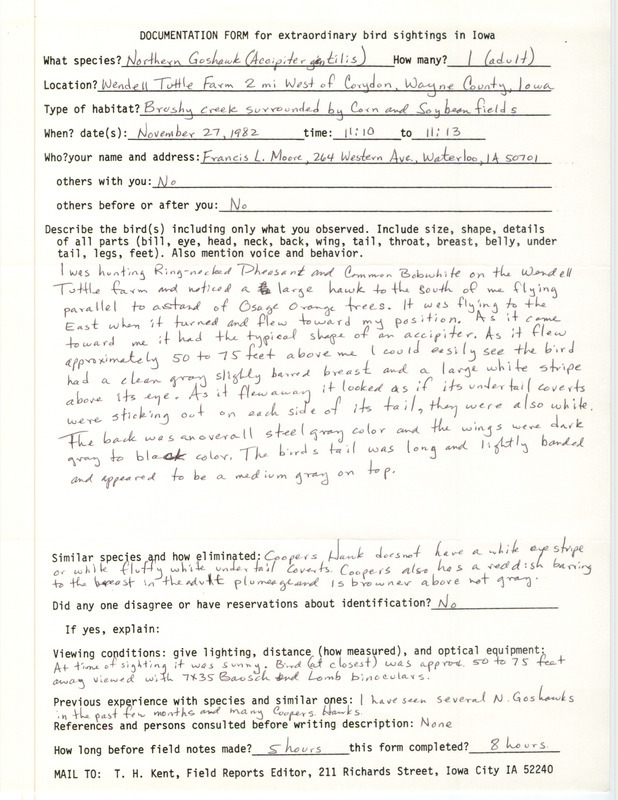 DOCUMENTATION FORM for extraordinary bird sightings in Iowa
What species? Northern Goshawk (Accipiter gentilis) How many? 1 (adult)
Location? Wendell Tuttle Farm 2 mi West of Corydon, Wayne County, Iowa
Type of habitat? Brushy creek surrounded by Corn and Soybean fields
When? date(s): November 27, 1982 time: 11:10 to 11:13
Who? your name and address: Francis L. Moore, 264 Western Ave., Waterloo, IA 50701
others with you: No
others before or after you: No
Describe the bird(s) including only what you observed. Include size, shape, details
of all parts (bill, eye, head, neck, back, wing, tail, throat, breast, belly, under
tail, legs, feet). Also mention voice and behavior.
I was hunting Ring-necked Pheasant and Common Bobwhite on the Wendell
Tuttle farm and noticed a large hawk to the south of me flying
parallel to a stand of Osage Orange trees. It was flying to the
East when it turned and flew toward my position. As it came
toward me it had the typical shape of an accipiter. As it flew
approximately 50 to 75 feet above me I could easily see the bird
had a clean gray slighly barred breast and a large white stripe
above its eye. As it flew away it looked as if its undertail coverts
were sticking out on each side of its tail, they were also white.
The back was an overall steel gray color and the wings were dark
gray to black color. The birds tail was long and lightly banded
and appeared to be a medium gray on top.
Similar species and how eliminated: Coopers Hawk does not have a white eye stripe
or white fluffy white undertail coverts. Coopers also has a reddish barring
to the breast in the adult plumeage and is browner above not gray.
Did any one disagree or have reservations about identification? No
If yes, explain:
Viewing conditions: give lighting, distance (how measured), and optical equipment:
At time of sighting it was sunny. Bird (at closest) was approx. 50 to 75 feet
away viewed with 7X35 Baosch and Lomb binoculars.
Previous experience with species and similar ones: I have seen several N. Goshawks
in the past few months and many Coopers Hawks.
References and persons consulted before writing description: None
How long before field notes made? 5 hours this form completed? 8 hours.
MAIL TO: T. H. Kent, Field Reports Editor, 211 Richards Street, Iowa City IA 52240